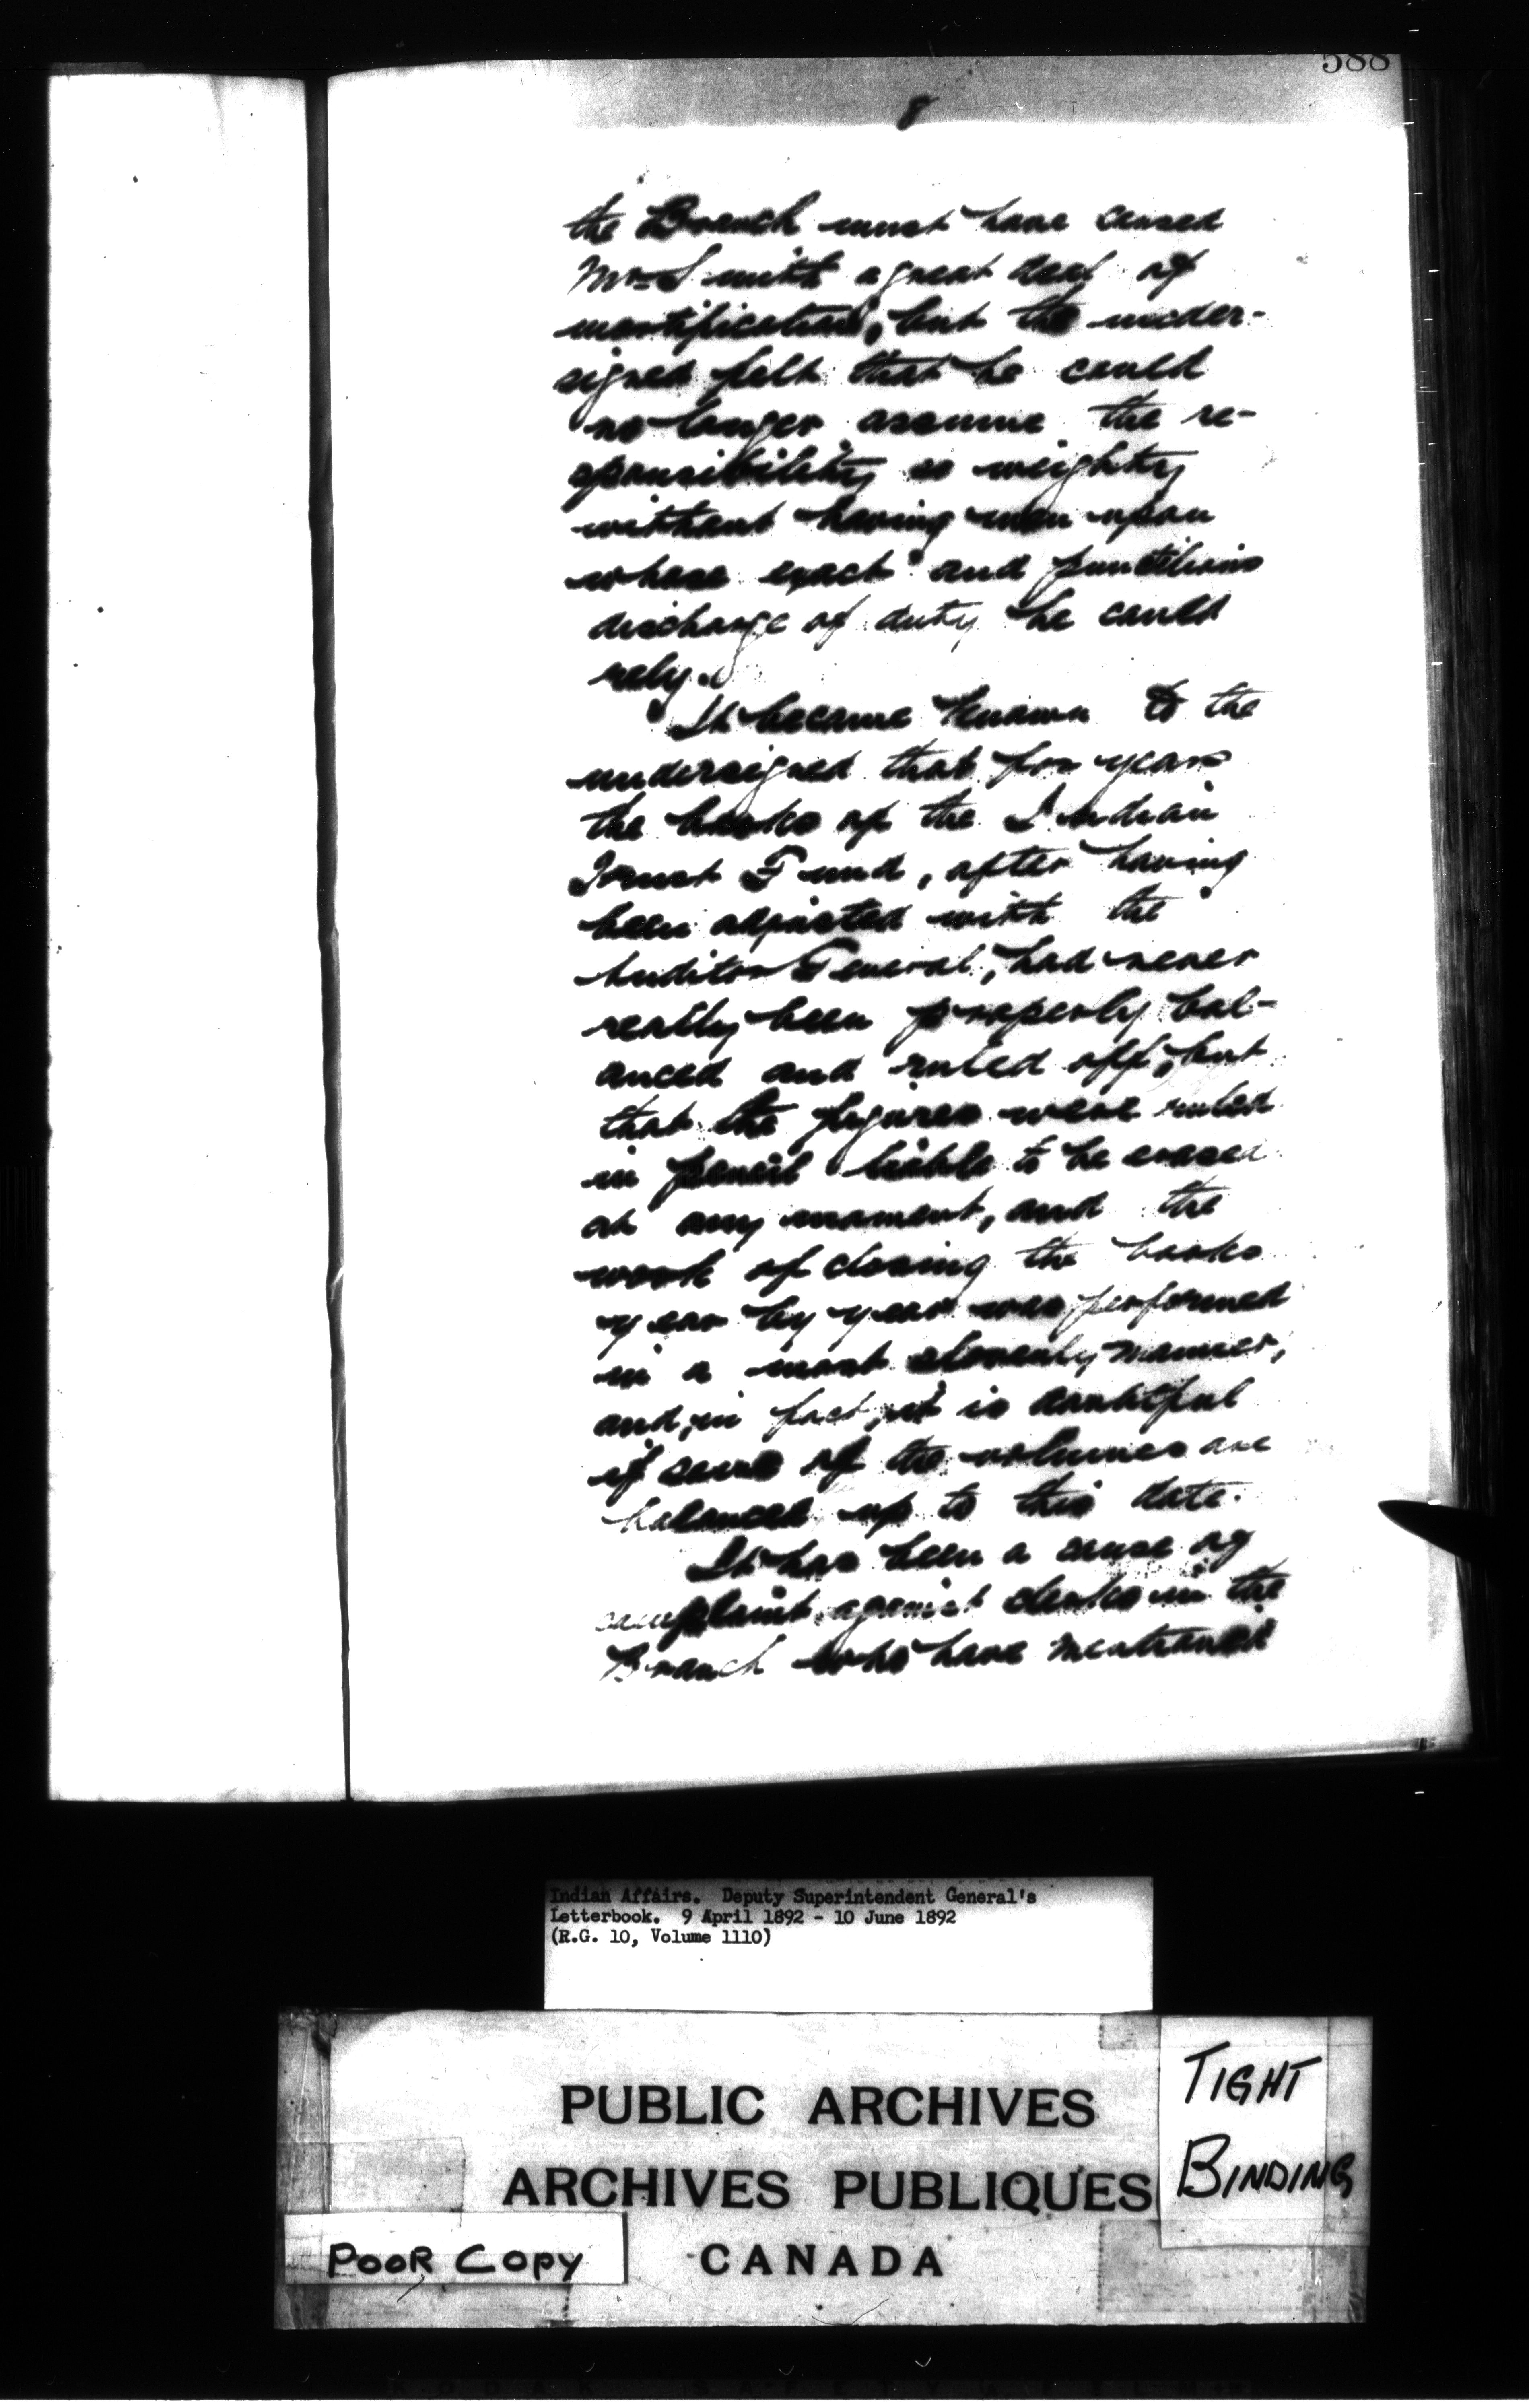 588
8
the Branch must have caused
Mr Smith a great deal of
mortification, but the under-
signed felt that he could
no longer assume the re-
sponsibility so weighty
without having men upon
whose exact and punctilious
discharge of duty he could
rely.
It became known to the
undersigned that for years
the books of the Indian
Trust Fund, after having
been adjusted with the
Auditor General, had never
really been properly bal-
anced and ruled off, but
that the figures were ruled
in pencil liable to be erased
at any moment, and the
work of closing the books
year by year was performed
in a most slovenly manner,
and, in fact, it is doubtful
if some of the volumes are
balanced up to this date.
It has been a cause of
complaint against clerks in the
Branch who have mentioned
Indian Affairs. Deputy Superintendent General's
Letterbook. 9 April 1892 - 10 June 1892
(R.G. 10, Volume 1110)
PUBLIC ARCHIVES
ARCHIVES PUBLIQUES
CANADA
TIGHT
BINDING
POOR COPY